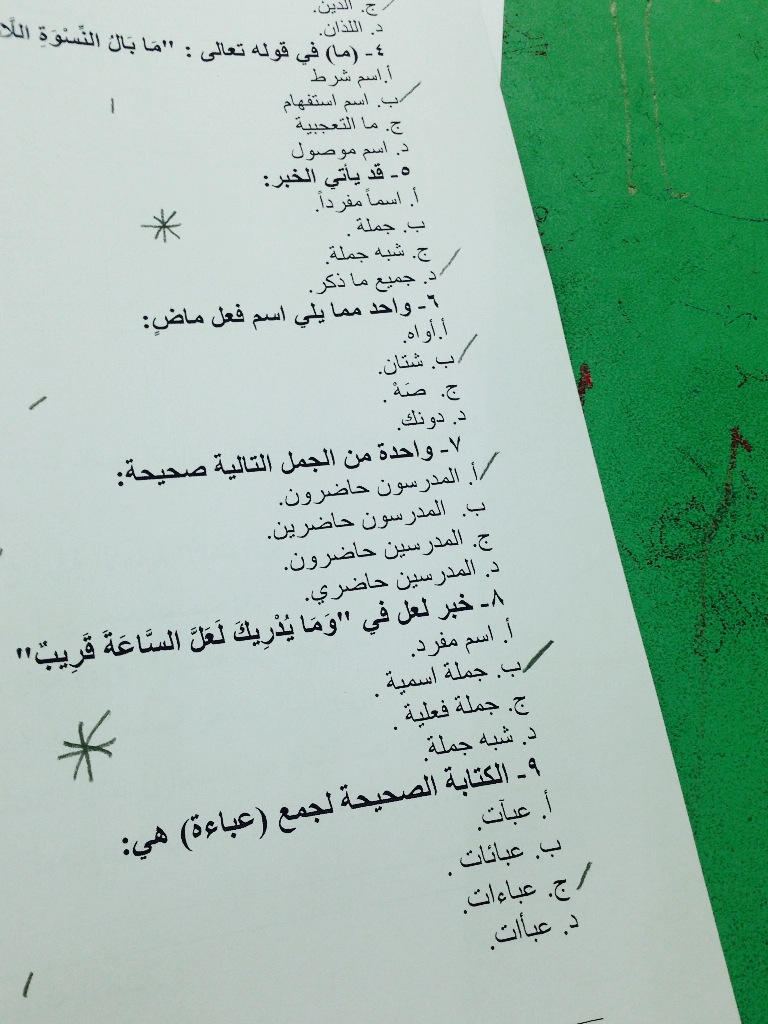 ج. الذين.
د. اللذان.
٤- (ما) في قوله تعالى : "مَا بَالُ النِّسْوَةِ
أ.اسم شرط
ب. اسم استفهام
ج. ما التعجبية
د. اسم موصول
٥- قد يأتي الخبر:
أ. اسماً مفرداً.
ب. جملة .
ج. شبه جملة.
د. جميع ما ذكر.
٦- واحد مما يلي اسم فعل ماضٍ:
أ.أواه.
ب. شتان.
ج. صَهْ .
د. دونك.
٧- واحدة من الجمل التالية صحيحة:
أ. المدرسون حاضرون.
ب. المدرسون حاضرين.
ج. المدرسين حاضرون.
د. المدرسين حاضري.
٨- خبر لعل في "وَمَا يُدْرِيكَ لَعَلَّ السَّاعَةَ قَرِيبٌ"
أ. اسم مفرد.
ب. جملة اسمية .
ج. جملة فعلية .
د. شبه جملة.
٩- الكتابة الصحيحة لجمع (عباءة) هي:
أ. عبآت.
ب. عبائات .
ج. عباءات.
د. عبأات.